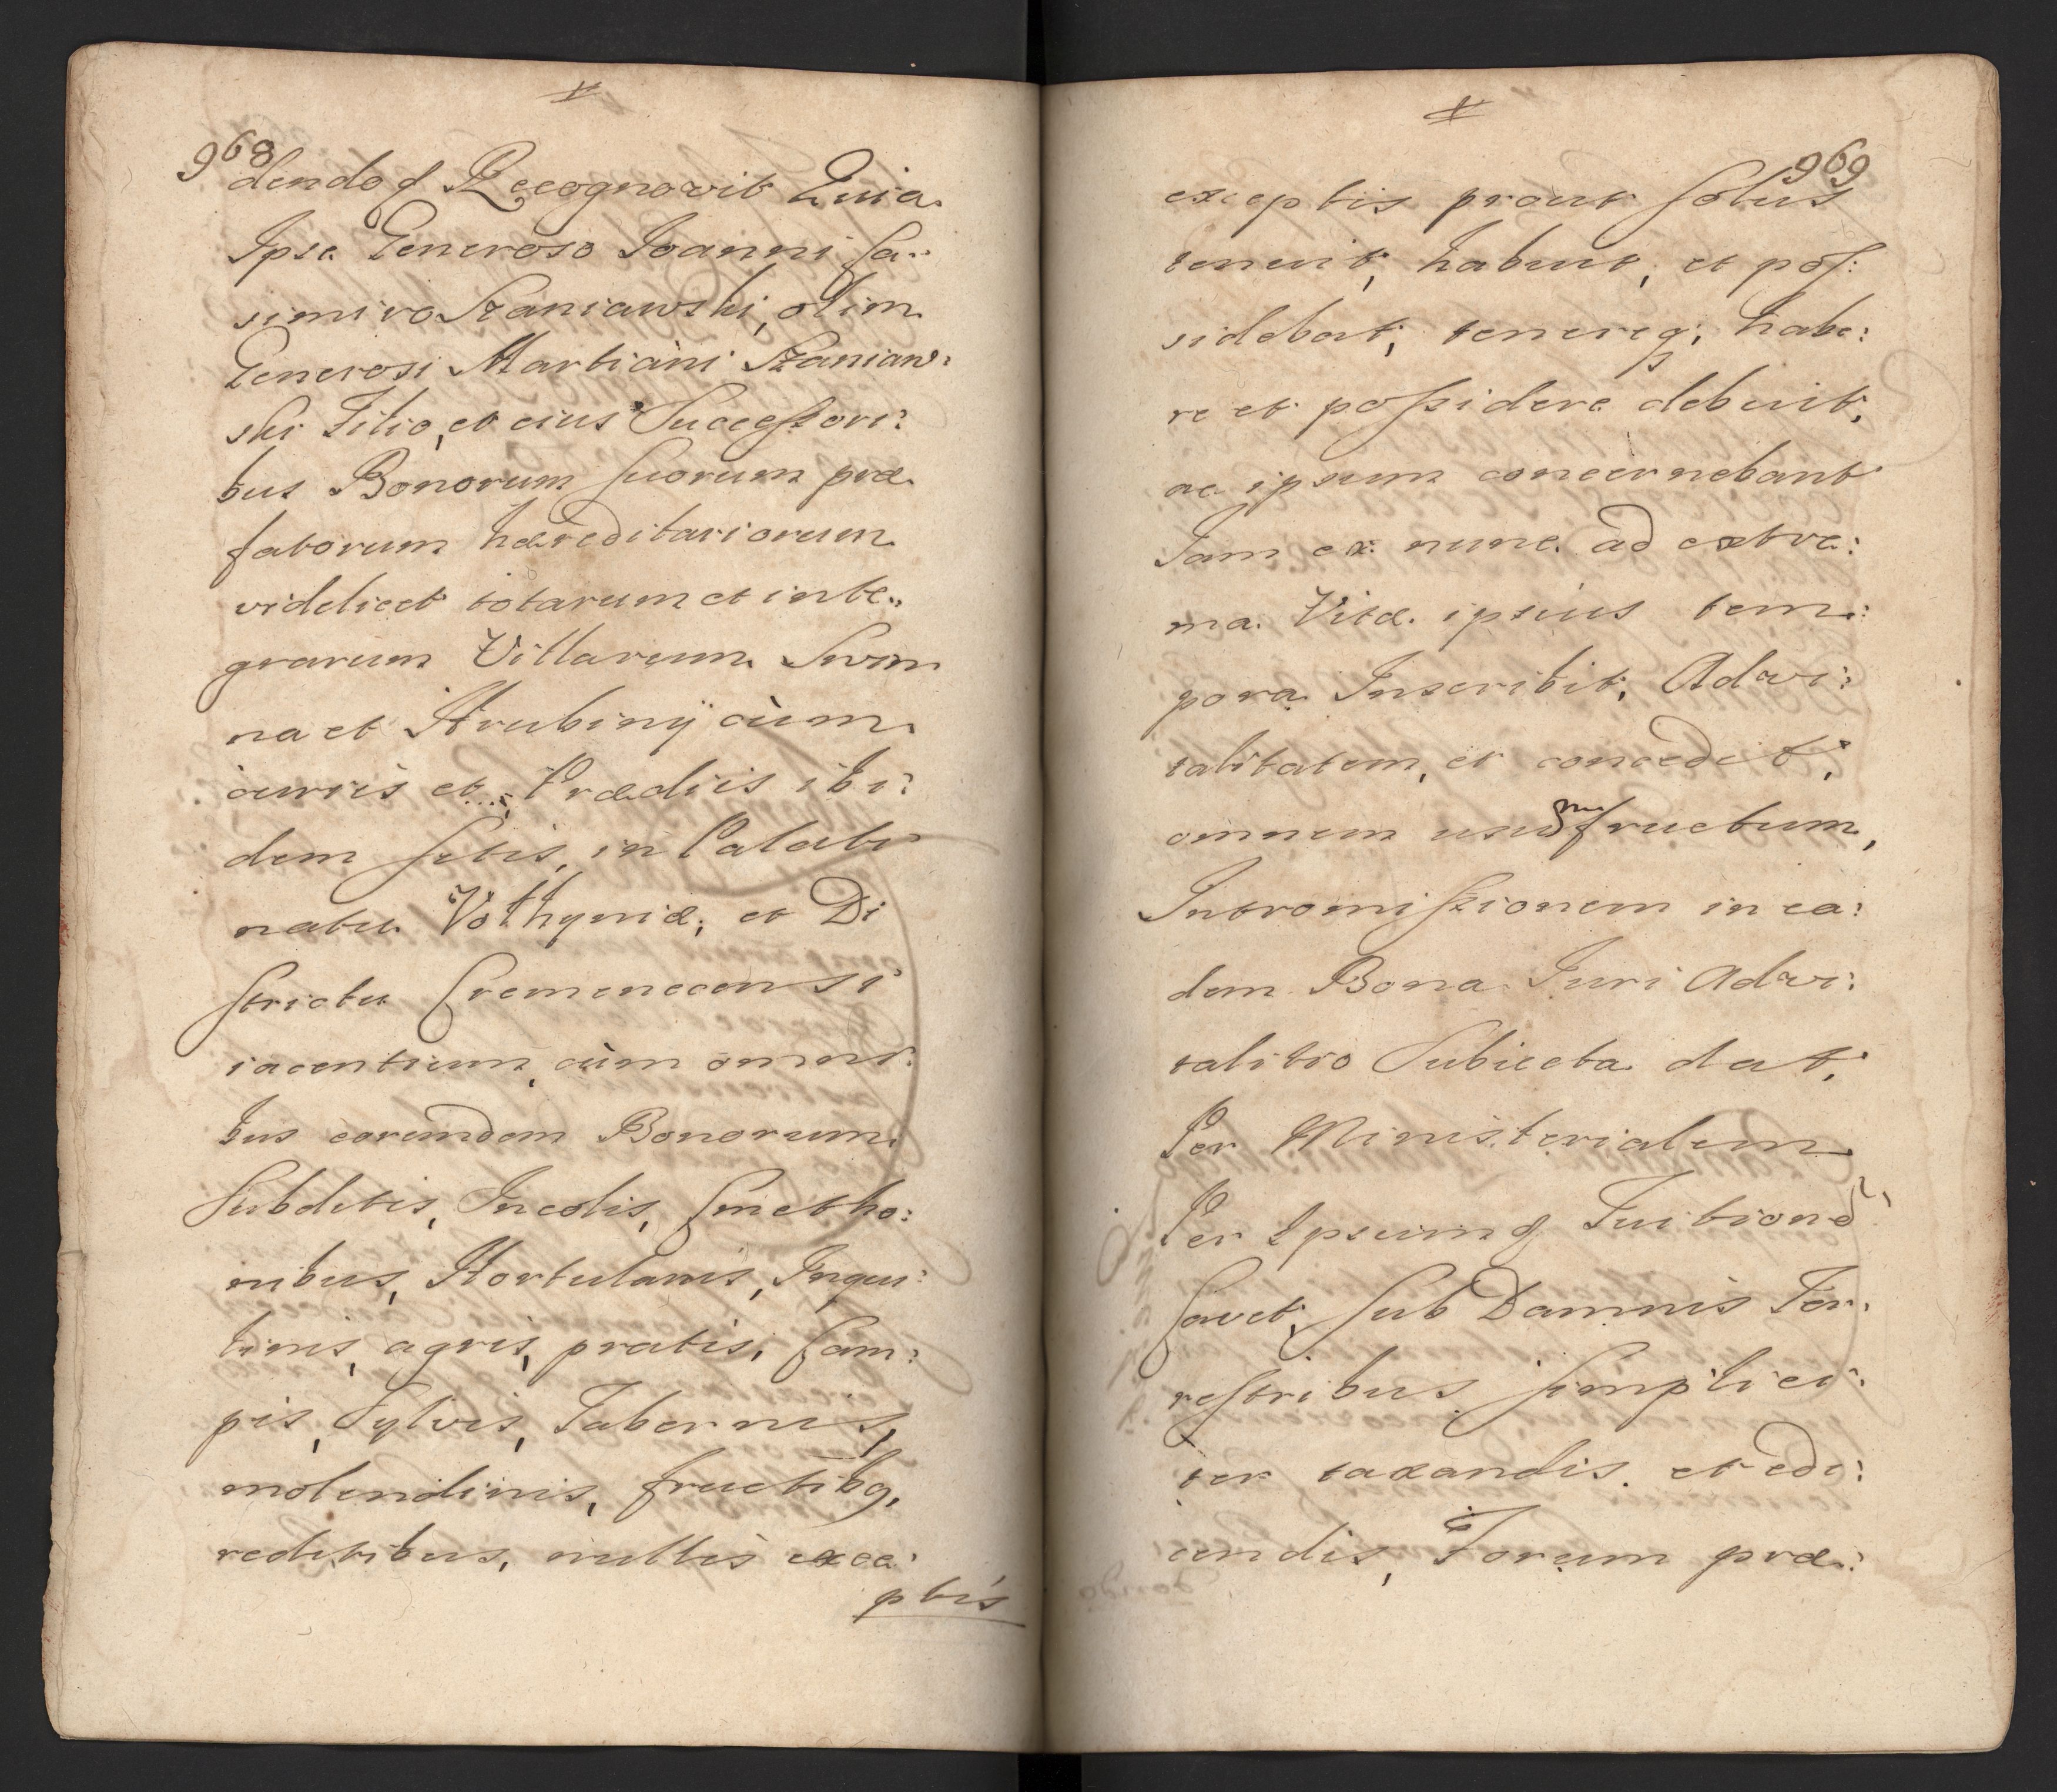 968
dendoq Recognovit Quia
Ipse Generoso Joanni Ca:
simiro Szaniawski, olim
Generosi Martiani Szaniaw:
ski Filio, et eius Successori:
bus Bonorum suorum præ
fatorum hæreditariorum
videlicet totarum et inte:
grarum Villarum Surm
na et Hrubiny cùm
curiis et Prædiis ibi:
dem sitis, in Palati
natu Volhyniæ, et Di
strictu Cremenecensi
iacentium, cùm omni:
bus eorundem Bonorum
Subditis, Incolis, Cmetho:
nibus, Hortulanis, Inqui:
linis, agris, pratis, Cam:
pis, Sylvis, Tabernis,
molendinis, fructibq,
reditibus, nullis exce:
ptis
969
exceptis prout solus
tenuit, habuit, et pos:
sidebat, tenereq; habe:
re et possidere debuit,
ac ipsum concernebant
Jam ex nunc ad extre:
ma Vitæ ipsius tem:
pora Inscribit, Advi:
talitatem, et concedit,
omnem usumfructum,
Intromissionem in ea:
dem Bona Juri Advi:
talitio Subiecta dat,
Per Ministerialem
Per Ipsumq Tuitione
Cavet, sub Damnis Ter:
restribus simplici:
ter taxandis et edi:
cendis, Forum præ: